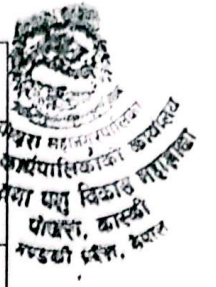 पोखरा महानगरपालिका
कार्यपालिकाको कार्यालय
पशु विकास महाशाखा
पोखरा, कास्की
गण्डकी प्रदेश, नेपाल